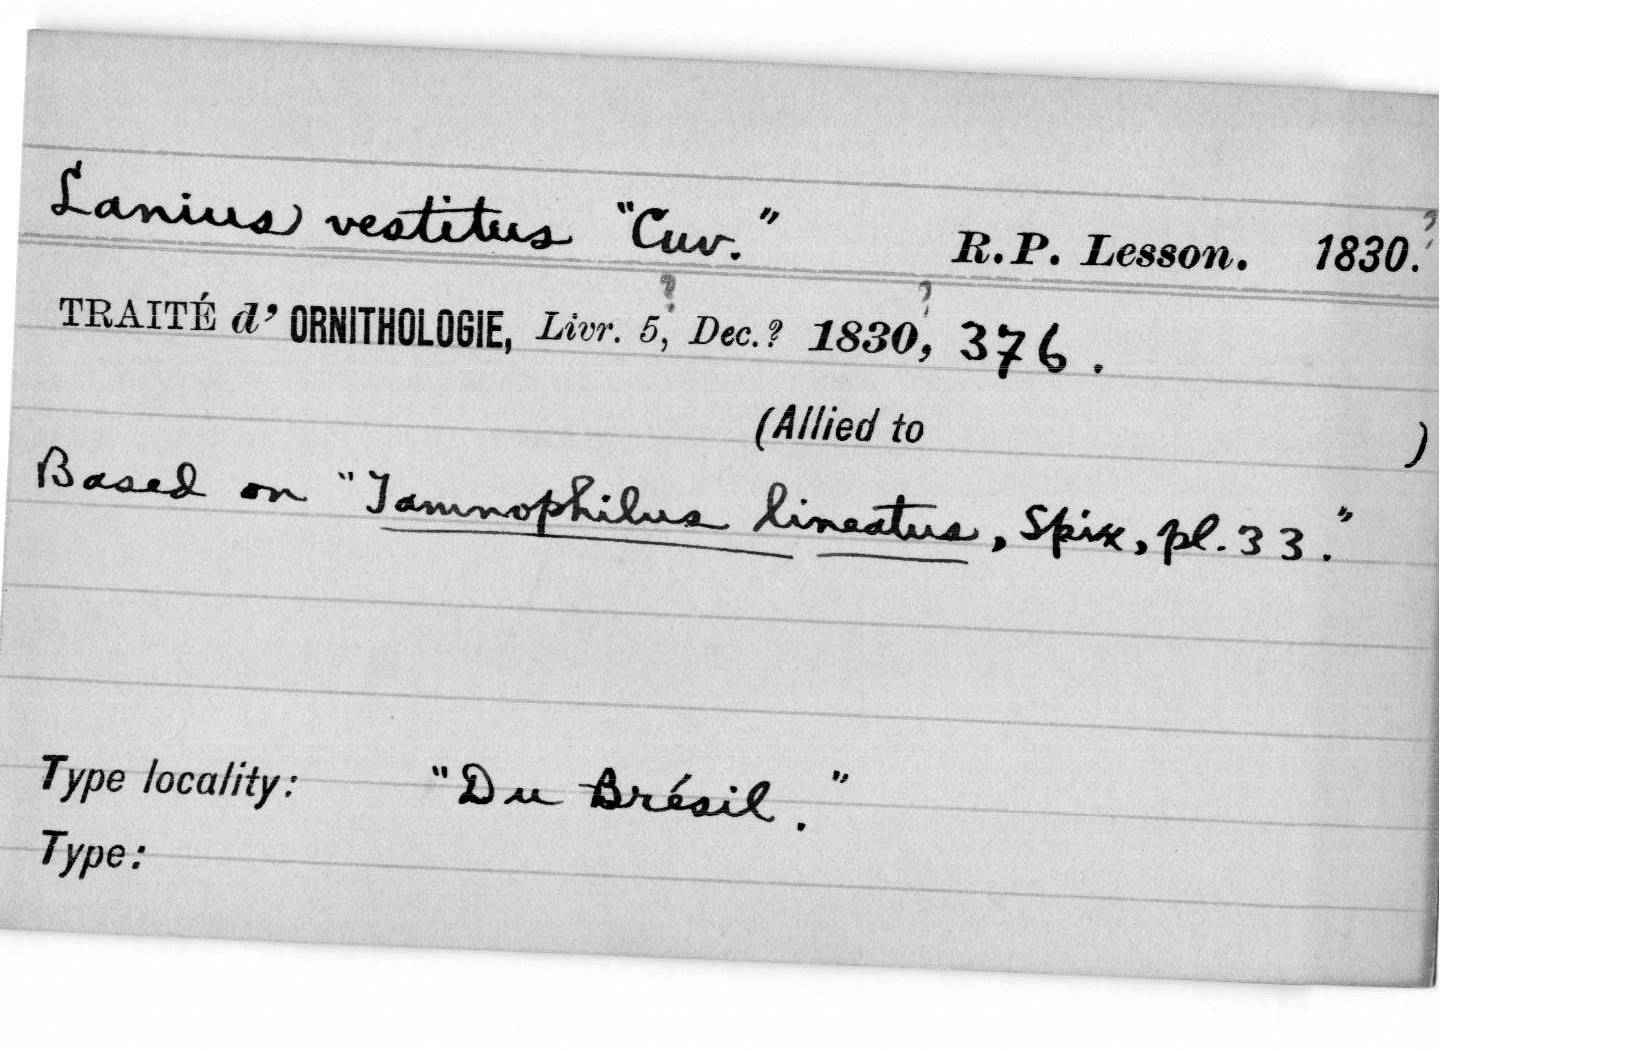 Lanius vestitus "Cuv." R.P. Lesson. 1830.?
TRAITÉ d' ORNITHOLOGIE, Livr. 5,? Dec.? 1830,? 376.
(Allied to )
Based on "Tamnophilus lineatus, Spix, pl. 33."
Type locality: "Du Brésil."
Type: